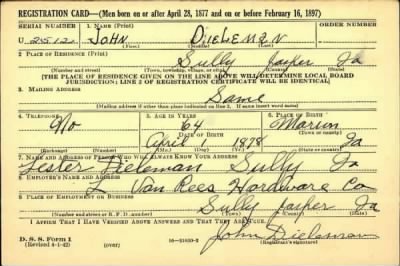 REGISTRATION CARD—(Men born on or after April 28, 1877 and on or before February 16, 1897)
SERIAL NUMBER 1. NAME (Print) ORDER NUMBER
U 2512 JOHN DIELEMAN
(First) (Middle) (Last)
2. PLACE OF RESIDENCE (Print)
Sully Jasper Ia
(Number and street) (Town, township, village, or city) (County) (State)
[THE PLACE OF RESIDENCE GIVEN ON THE LINE ABOVE WILL DETERMINE LOCAL BOARD
JURISDICTION; LINE 2 OF REGISTRATION CERTIFICATE WILL BE IDENTICAL]
3. MAILING ADDRESS
Same
[Mailing address if other than place indicated on line 2. If same insert word same]
4. TELEPHONE 5. AGE IN YEARS 6. PLACE OF BIRTH
No 64 Marion
DATE OF BIRTH (Town or county)
April 1878 Ia
(Exchange) (Number) (Mo.) (Day) (Yr.) (State or country)
7. NAME AND ADDRESS OF PERSON WHO WILL ALWAYS KNOW YOUR ADDRESS
Lester Dieleman Sully Ia
8. EMPLOYER'S NAME AND ADDRESS
Van Rees Hardware Co
9. PLACE OF EMPLOYMENT OR BUSINESS
Sully Jasper Ia
(Number and street or R. F. D. number) (Town) (County) (State)
I AFFIRM THAT I HAVE VERIFIED ABOVE ANSWERS AND THAT THEY ARE TRUE.
John Dieleman
D. S. S. Form 1
(Revised 4-1-42) (over) (Registrant's signature)